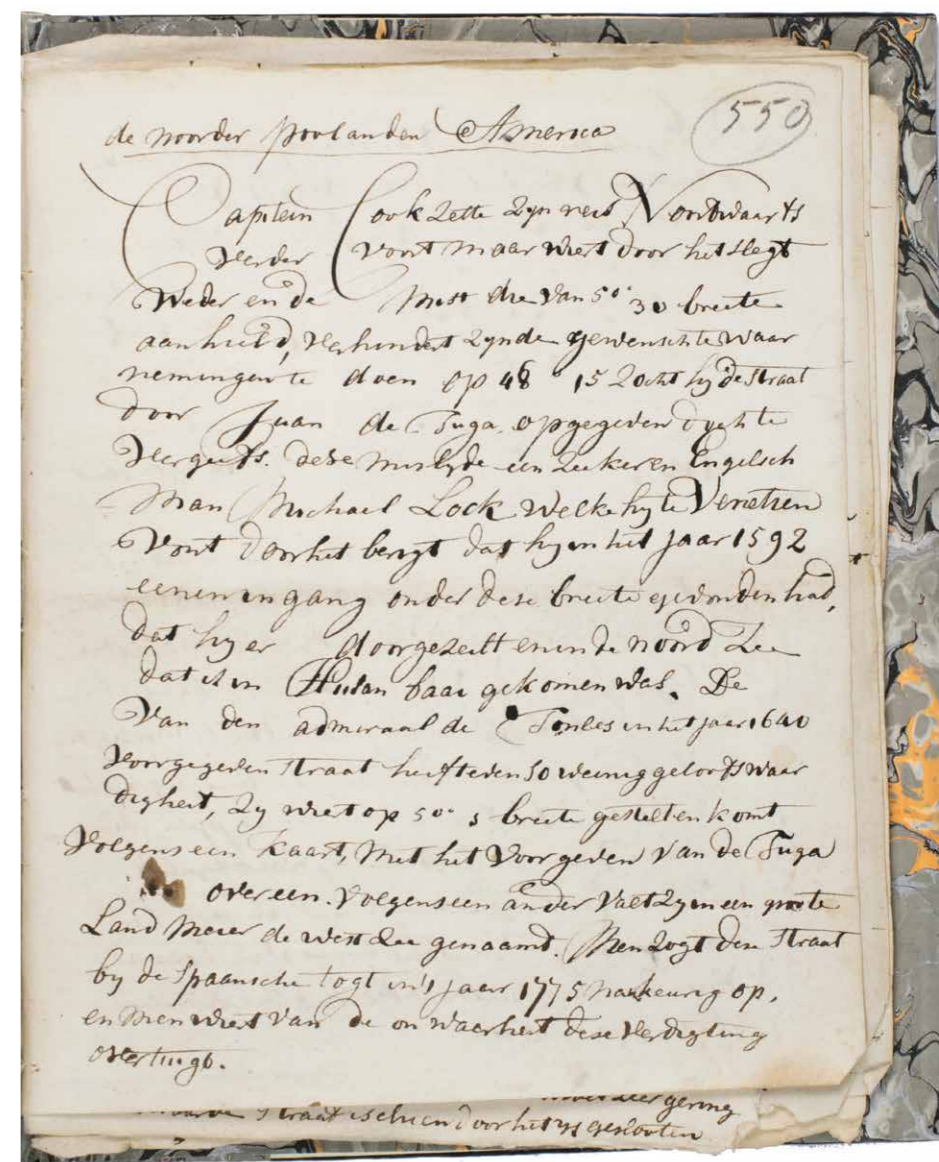 de noorder poolanden America
550
Captein Cook zette zyn reis Noordwaarts
verder voort maar wiert door het slegt
Weder en de Mist die van 50° 30 breete
aanhield, verhindert zynde gewenschte waar
nemingen te doen op 48° 15 zocht hy de straat
door Juan de Fuga opgegeven doch te
vergeefs. dese misleyde een zeekeren Engelsch
man Michael Lock welke hy te Venetien
vont door het berigt dat hy in het jaar 1592
eenen ingang onder dese breete gevonden had,
dat hy er doorgezeilt en in de noord Zee
dat is in Hudsan baai gekomen was. De
van den admiraal de Fontes in het jaar 1640
voorgegeven straat heeft even so weinig geloofswaar
digheit, zy wiert op 50° s breete gestelt en komt
volgens een kaart, met het voorgeven van de Fuga
overeen. volgens een ander valt zy in een groote
Land Meier de west Zee genaamt. Men zogt dese straat
by de Spaansche togt in't jaar 1775 naukeurig op,
en men wiert van de onwaarheit dese verdigting
overtuigd.
zeer gering
straat is schien door het ys geslooten